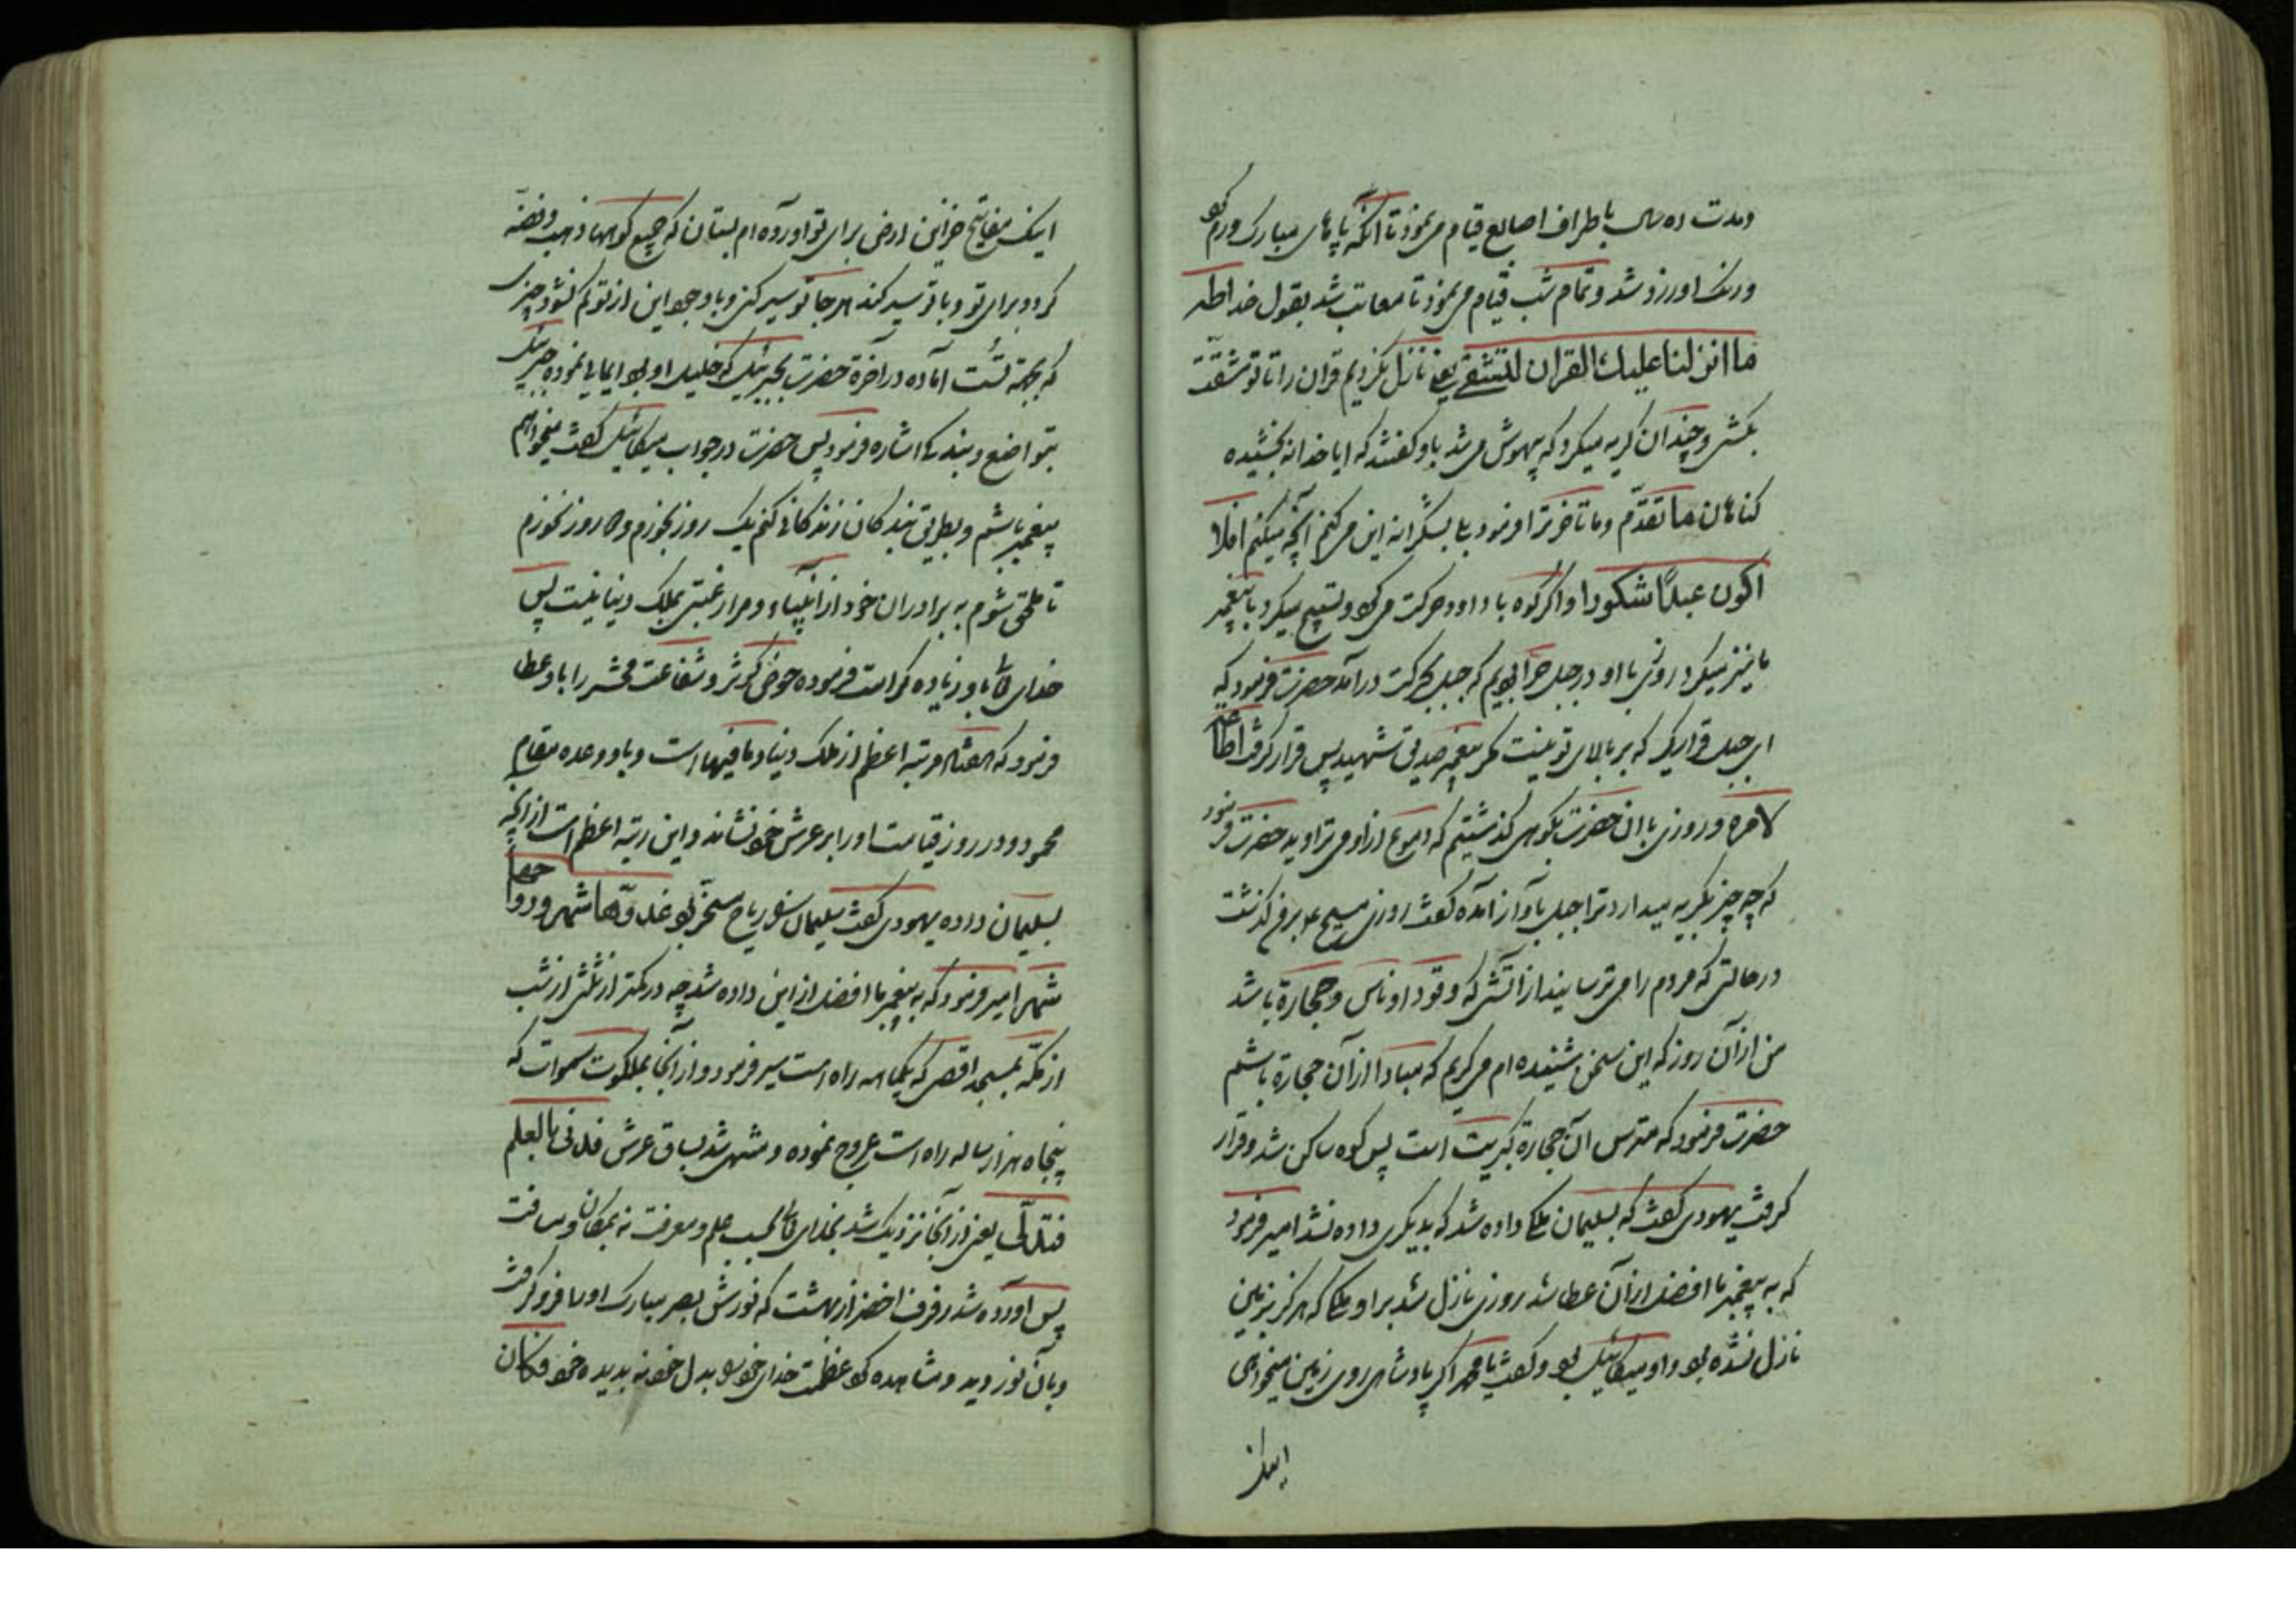 ومدت ده سال باطراف اصابع قیام می‌نمود تا آنکه پاهای مبارک ورم کرد
ورنک او زرد شد و تمام شب قیام می‌نمود تا معاتب شد بقول خدا طه
ما انزلنا علیك القران لتشقی یعنی نازل نکردیم قران را تا تو مشقت
بکشی و چندان کریه میکرد که بیهوش می شد باو کفتند که ایا خدا نه بخشیده
کناهان ما تقدّم وما تاخر ترا فرمود بلی بشکرانه این می کنم آنچه میکنم افلا
اکون عبدًا شکورا واکر کوه با داود حرکت می کرد و تسبیح میکرد با پیغمبر
ما نیز میکرد روزی با او در جبل حرا بودیم که جبل بحرکت درآمد حضرت فرمود که
ای جبل قرار بکیر که بر بالای تو نیست مکر پیغمبر صدیق شهید پس قرار کرفت اطاعا
لامره و روزی با ان حضرت بکوهی کذشتیم که دموع از او می تراوید حضرت فرمود
که چه چیز بکریه میدارد ترا جبل بآواز آمده کفت روزی مسیح بر من کذشت
در حالتی که مردم را می ترسانید از آتشی که وقود او ناس و حجارة باشد
من از آن روز که این سخن شنیده ام می کریم که مبادا از آن حجارة باشم
حضرت فرمود که مترس آن حجارة کبریت است پس کوه ساکن شد و قرار
کرفت یهودی کفت که بسلیمان ملکی داده شد که بدیکری داده نشد امیر فرمود
که به پیغمبر ما افضل از آن عطا شد روزی نازل شد بر او ملکی که هرکز بزمین
نازل نشده بود و او میکائیل بود و کفت یا محمد اکر پادشاهی روی زمین میخواهی
اینک
اینک مفاتیح خزاین ارض برای تو آورده ام بستان که جمیع کوهها ذهب و فضه
کردد برای تو و با تو سیر کند هر جا تو سیر کنی و با وجود این از تو کم نشود چیزی
که بجهة تست آماده در آخرة حضرت بجبرئیل که خلیل او بود ایمایی نموده جبرئیل
بتواضع و بندکی اشاره فرمود پس حضرت در جواب میکائیل کفت میخواهم
پیغمبر باشم و بطریق بندکان زندکانی کنم یک روز بخورم و دو روز نخورم
تا ملحق شوم به برادران خود از انبیاء و مرا رغبتی بملک دنیا نیست پس
خدای تعالی باو زیاده کرامت فرموده حوض کوثر و شفاعت محشر را باو عطا
فرمود که هفتاد مرتبه اعظم از ملک دنیا و ما فیها است و باو وعده مقام
محمود و در روز قیامت او را بر عرش خود نشاند و این رتبه اعظم است از آنچه
بسلیمان داده یهودی کفت بسلیمان ریاح مسخر بود غدوّها شهر و رواحها
شهر امیر فرمود که به پیغمبر ما افضل از این داده شد چه در کمتر از ثلثی از شب
از مکّه بمسجد اقصی که یکماهه راه است سیر فرمود و از آنجا بملکوت سموات که
پنجاه هزار ساله راه است عروج نموده و منتهی شد بساق عرش فدنی بالعلم
فتدلّی یعنی از آنجا نزدیک شد بخدای تعالی بحسب علم و معرفت نه بمکان و مسافت
پس آورده شد رفرف اخضر از بهشت که نورش بصر مبارک او را فرو کرفت
و بآن نور دید و مشاهده کرد عظمت خدای خود را بدل خود نه بدیده خود فکان